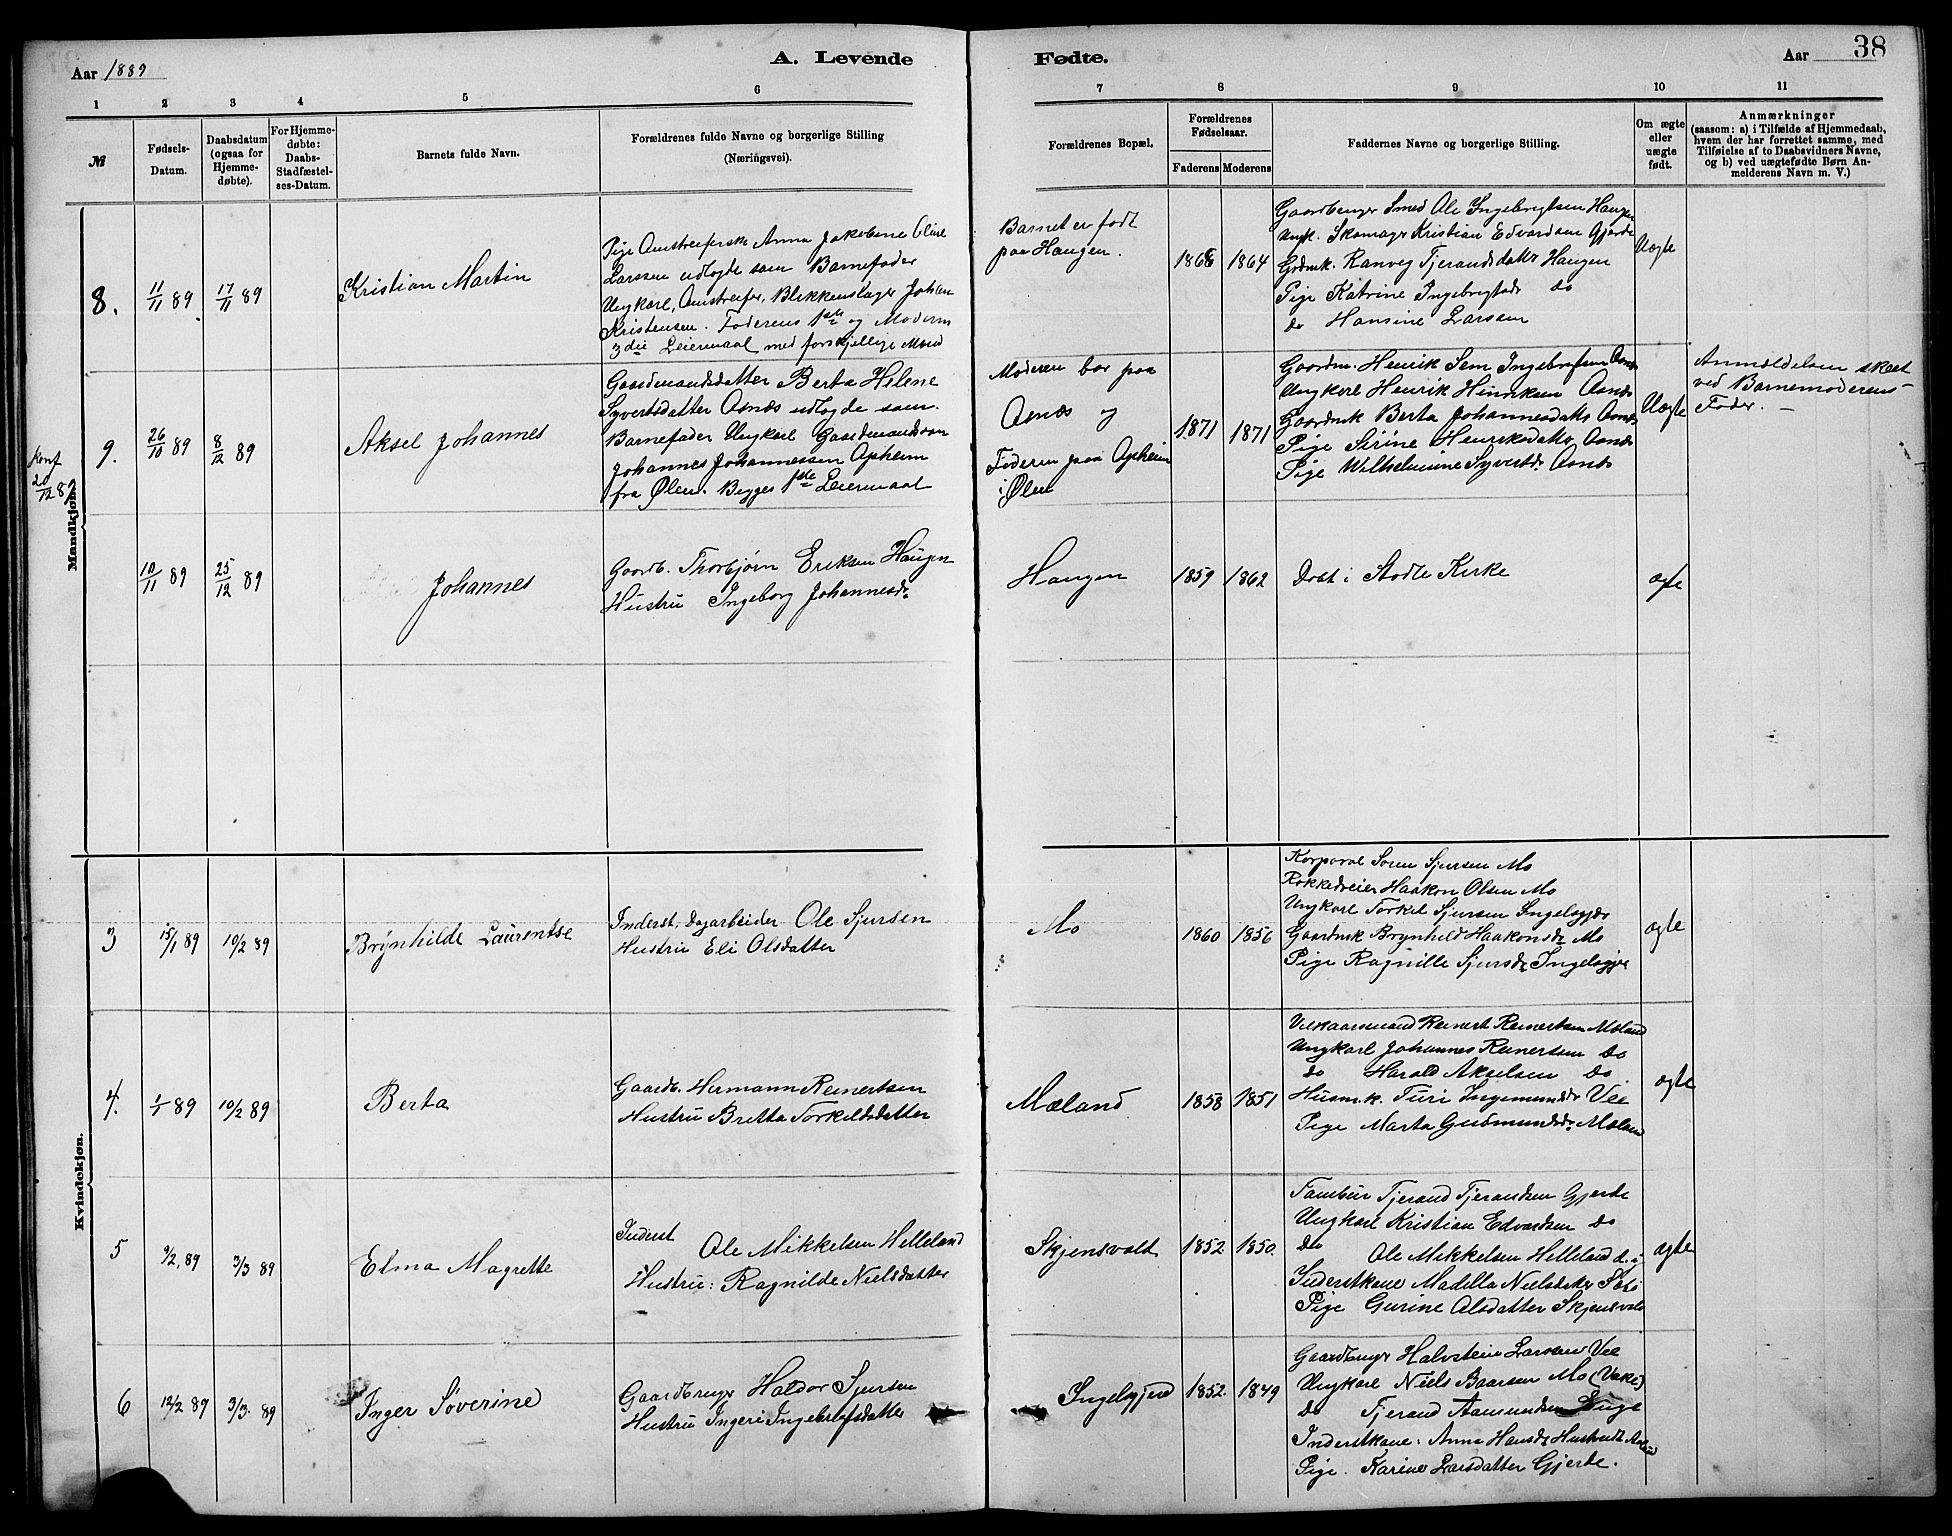 Aar 1889
A. Levende
Fødte.
Aar
38
1 2 3 4 5 6 7 8 9 10 11
№
Fødsels-
Datum.
Daabsdatum
(ogsaa for
Hjemme-
døbte).
For Hjemme-
døbte:
Daabs-
Stadfæstel-
ses-Datum.
Barnets fulde Navn.
Forældrenes fulde Navne og borgerlige Stilling
(Næringsvei).
Forældrenes Bopæl.
Forældrenes
Fødselsaar.
Faderens Moderens
Faddernes Navne og borgerlige Stilling.
Om ægte
eller
uægte
født.
Anmærkninger
(saasom: a) i Tilfælde af Hjemmedaab,
hvem der har forrettet samme, med
Tilføielse af to Daabsvidners Navne,
og b) ved uægtefødte Børn An-
melderens Navn m. V.)
Mandkjøn.
8.
11/11 89
17/11 89
Kristian Martin
Pige Omstreiferske Anna Jakobine Oline
Larssen udlagde som Barnefader
Ungkarl, Omstreifer, Blikkenslager Johan
Kristensen. Faderens 1ste og Moderens
3die Leiermaal med forskjellige Mænd
Barnet er født
paa Haugen.
1866
1864
Gaardbruger Smed Ole Ingebrigtsen Haugen
Ungk. Skomager Kristian Edvardsen Gjerde
Grdmk. Ranveg Tjerandsdatter Haugen
Pige Katrine Ingebrigtsdr do
do Hansine Larssen
Uægte
9.
26/10 89
8/12 89
Aksel Johannes
Gaardmandsdatter Berta Helene
Syvertsdatter Osnæs udlagde som
Barnefader Ungkarl Gaardmandssøn
Johannes Johannessen Opheim
fra Ølen. Begges 1ste Leiermaal
Moderen bor paa
Osnæs og
Faderen paa Opheim
i Ølen
1871
1871
Gaardm. Henrik Sem Ingebretsen Osnæs
Ungkarl Henrik Henriksen Osnæs
Gaardmk Berta Johannesdatter Osnæs
Pige Sirine Henriksdatter Osnæs
Pige Wilhelmine Syvertsdr Osnæs
Uægte
Anmeldelsen skeet
ved Barnemoderens
Fader.
10/11 89
25/12 89
Johannes
Gaardb. Thorbjørn Eriksen Haugen
Hustru Ingeborg Johannesdr
Haugen
1859
1862
Døbt i Stodle Kirke
ægte
Kvindekjøn.
3
15/1 89
10/2 89
Brynhilde Laurentse
Inderst, Dagarbeider Ole Sjursen
Hustru Eli Olsdatter
Mo
1860
1856
Korporal Soren Sjursen Mo
Rokkedreier Haakon Olsen Mo
Ungkarl Torkel Sjursen Ingelsgjær
Gaardmk Brynhild Haakonsdr Mo
Pige Ragnille Sjursdr Ingelsgjær
ægte
4.
1/1 89
10/2 89
Berta
Gaardb. Hermann Reinertsen
Hustru Britta Torkildsdatter
Mæland
1858
1851
Vilkaarsmand Reinert Reinertsen Mæland
Ungkarl Johannes Reinertsen do
do Harald Akselsen do.
Husm.k. Turi Ingemundsdr Vee
Pige Marta Gudmundsdr Mæland
ægte
5
9/2, 89
3/3 89
Elma Magrette
Inderst
Ole Mikkelsen Helleland
Hustru: Ragnilde Nielsdatter
Skjensvold
1852
1850
Tambur Tjerand Tjerandsen Gjerde
Ungkarl Kristian Edvardsen do
do Ole Mikkelsen Helleland
Inderstkone Madella Nielsdatter
Pige Gurine Olsdatter Skjensvold
ægte
6
12/2 89
3/3. 89
Inger Søverine
Gaardbruger Haldor Sjursen
Hustru Ingeri Ingebretsdatter
Ingelsgjerd
1852
1849
Gaardbruger Halvstein Larssen Vee
Ungkarl Niels Baarsen Mo (Vake)
do Tjerand Aamundsen
Inderstkone: Anna Hansdr Hustveidt
Pige. Karine Larsdatter Gjerde.